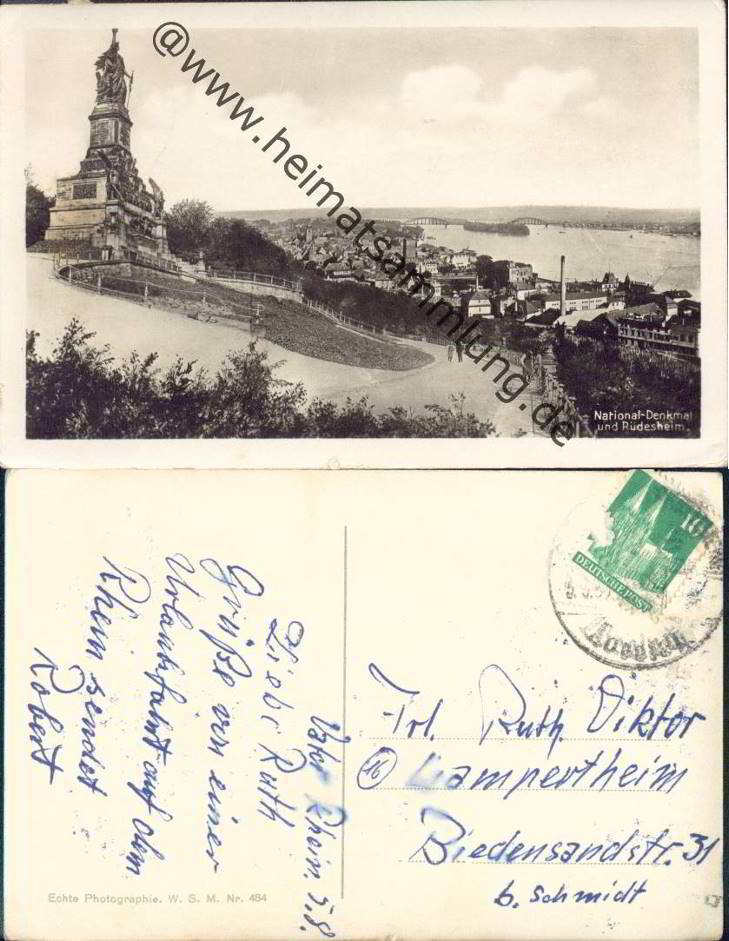 @www.heimatsammlung.de
National-Denkmal
und Rüdesheim
10
DEUTSCHE POST
Rhein, 5.8.
Liebe Ruth
Grüße von einer
Urlaubfahrt auf dem
Rhein sendet
Robert
Frl. Ruth Viktor
(16) Lampertheim
Biedensandstr. 31
b. Schmidt
Echte Photographie. W. S. M. Nr. 484